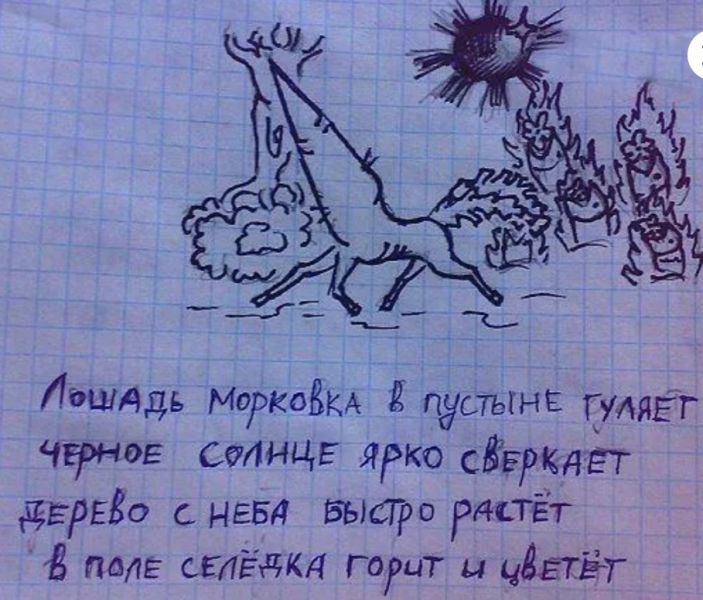 Лошадь морковка в пустыне гуляет
черное солнце ярко сверкает
дерево с неба быстро растёт
в поле селёдка горит и цветёт